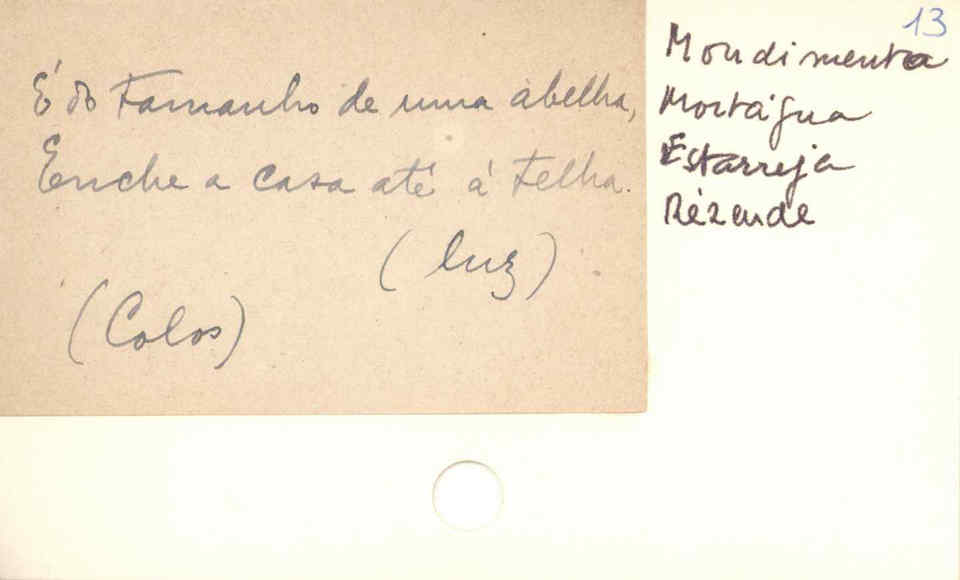 É do tamanho de uma abelha,
Enche a casa até à telha.
(luz)
(Colos)
13
Mondimenta
Mortágua
Estarreja
Rèzende